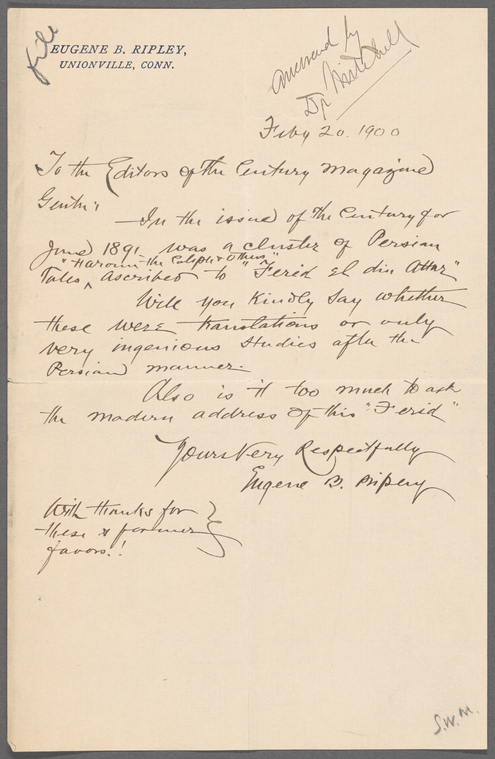 file
EUGENE B. RIPLEY,
UNIONVILLE, CONN.
answered by
Dr Mitchell
Feby 20. 1900
To the Editors of the Century Magazine
Gents:
In the issue of the Century for
June 1891 was a cluster of Persian
"Haroun the Caliph & Others"
Tales ^ ascribed to "Ferid el din Attar"
Will you kindly say whether
these were translations or only
very ingenious studies after the
Persian manner.
Also is it too much to ask
the modern address of this "Ferid"
Yours Very Respectfully
Eugene B. Ripley
With thanks for
these & former
favors!!
S.W.M.